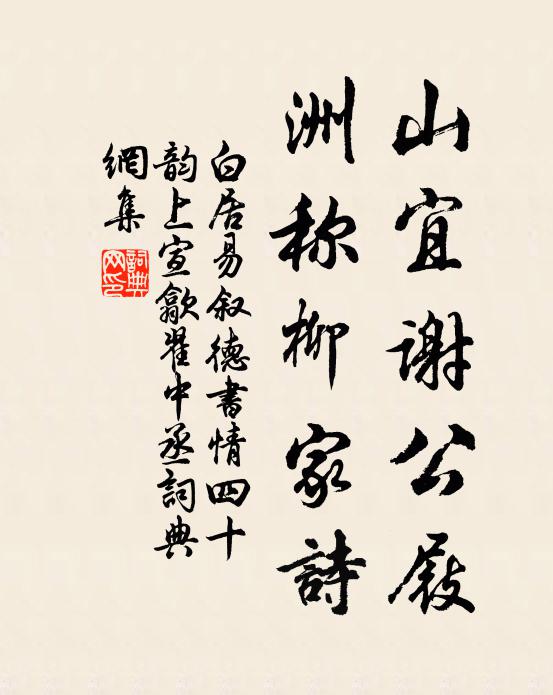 山宜謝公屐
洲称柳家詩
白居易叙德書情四十
韵上宣歙翟中丞詞典
網集
詞典網印